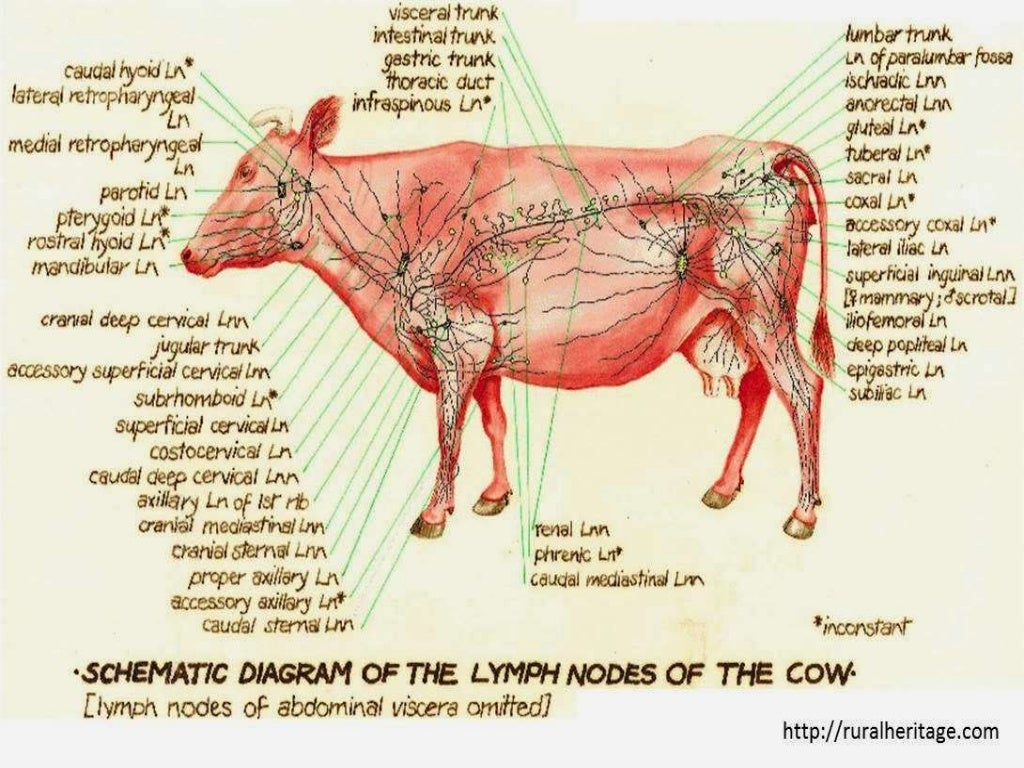 visceral trunk
intestinal trunk
gastric trunk
thoracic duct
infraspinous Ln*
caudal hyoid Ln*
lateral retropharyngeal
Ln
medial retropharyngeal
Ln
parotid Ln
pterygoid Ln*
rostral hyoid Ln*
mandibular Ln
cranial deep cervical Lnn
jugular trunk
accessory superficial cervical Lnn
subrhomboid Ln*
superficial cervical Ln
costocervical Ln
caudal deep cervical Lnn
axillary Ln of 1st rib
cranial mediastinal Lnn
cranial sternal Lnn
proper axillary Ln
accessory axillary Ln*
caudal sternal Lnn
lumbar trunk
Ln of paralumbar fossa
ischiadic Lnn
anorectal Lnn
gluteal Ln*
tuberal Ln*
sacral Ln
coxal Ln*
accessory coxal Ln*
lateral iliac Ln
superficial inguinal Lnn
[♀mammary; ♂scrotal]
iliofemoral Ln
deep popliteal Ln
epigastric Ln
subiliac Ln
renal Lnn
phrenic Ln*
caudal mediastinal Lnn
*inconstant
·SCHEMATIC DIAGRAM OF THE LYMPH NODES OF THE COW·
[lymph nodes of abdominal viscera omitted]
http://ruralheritage.com